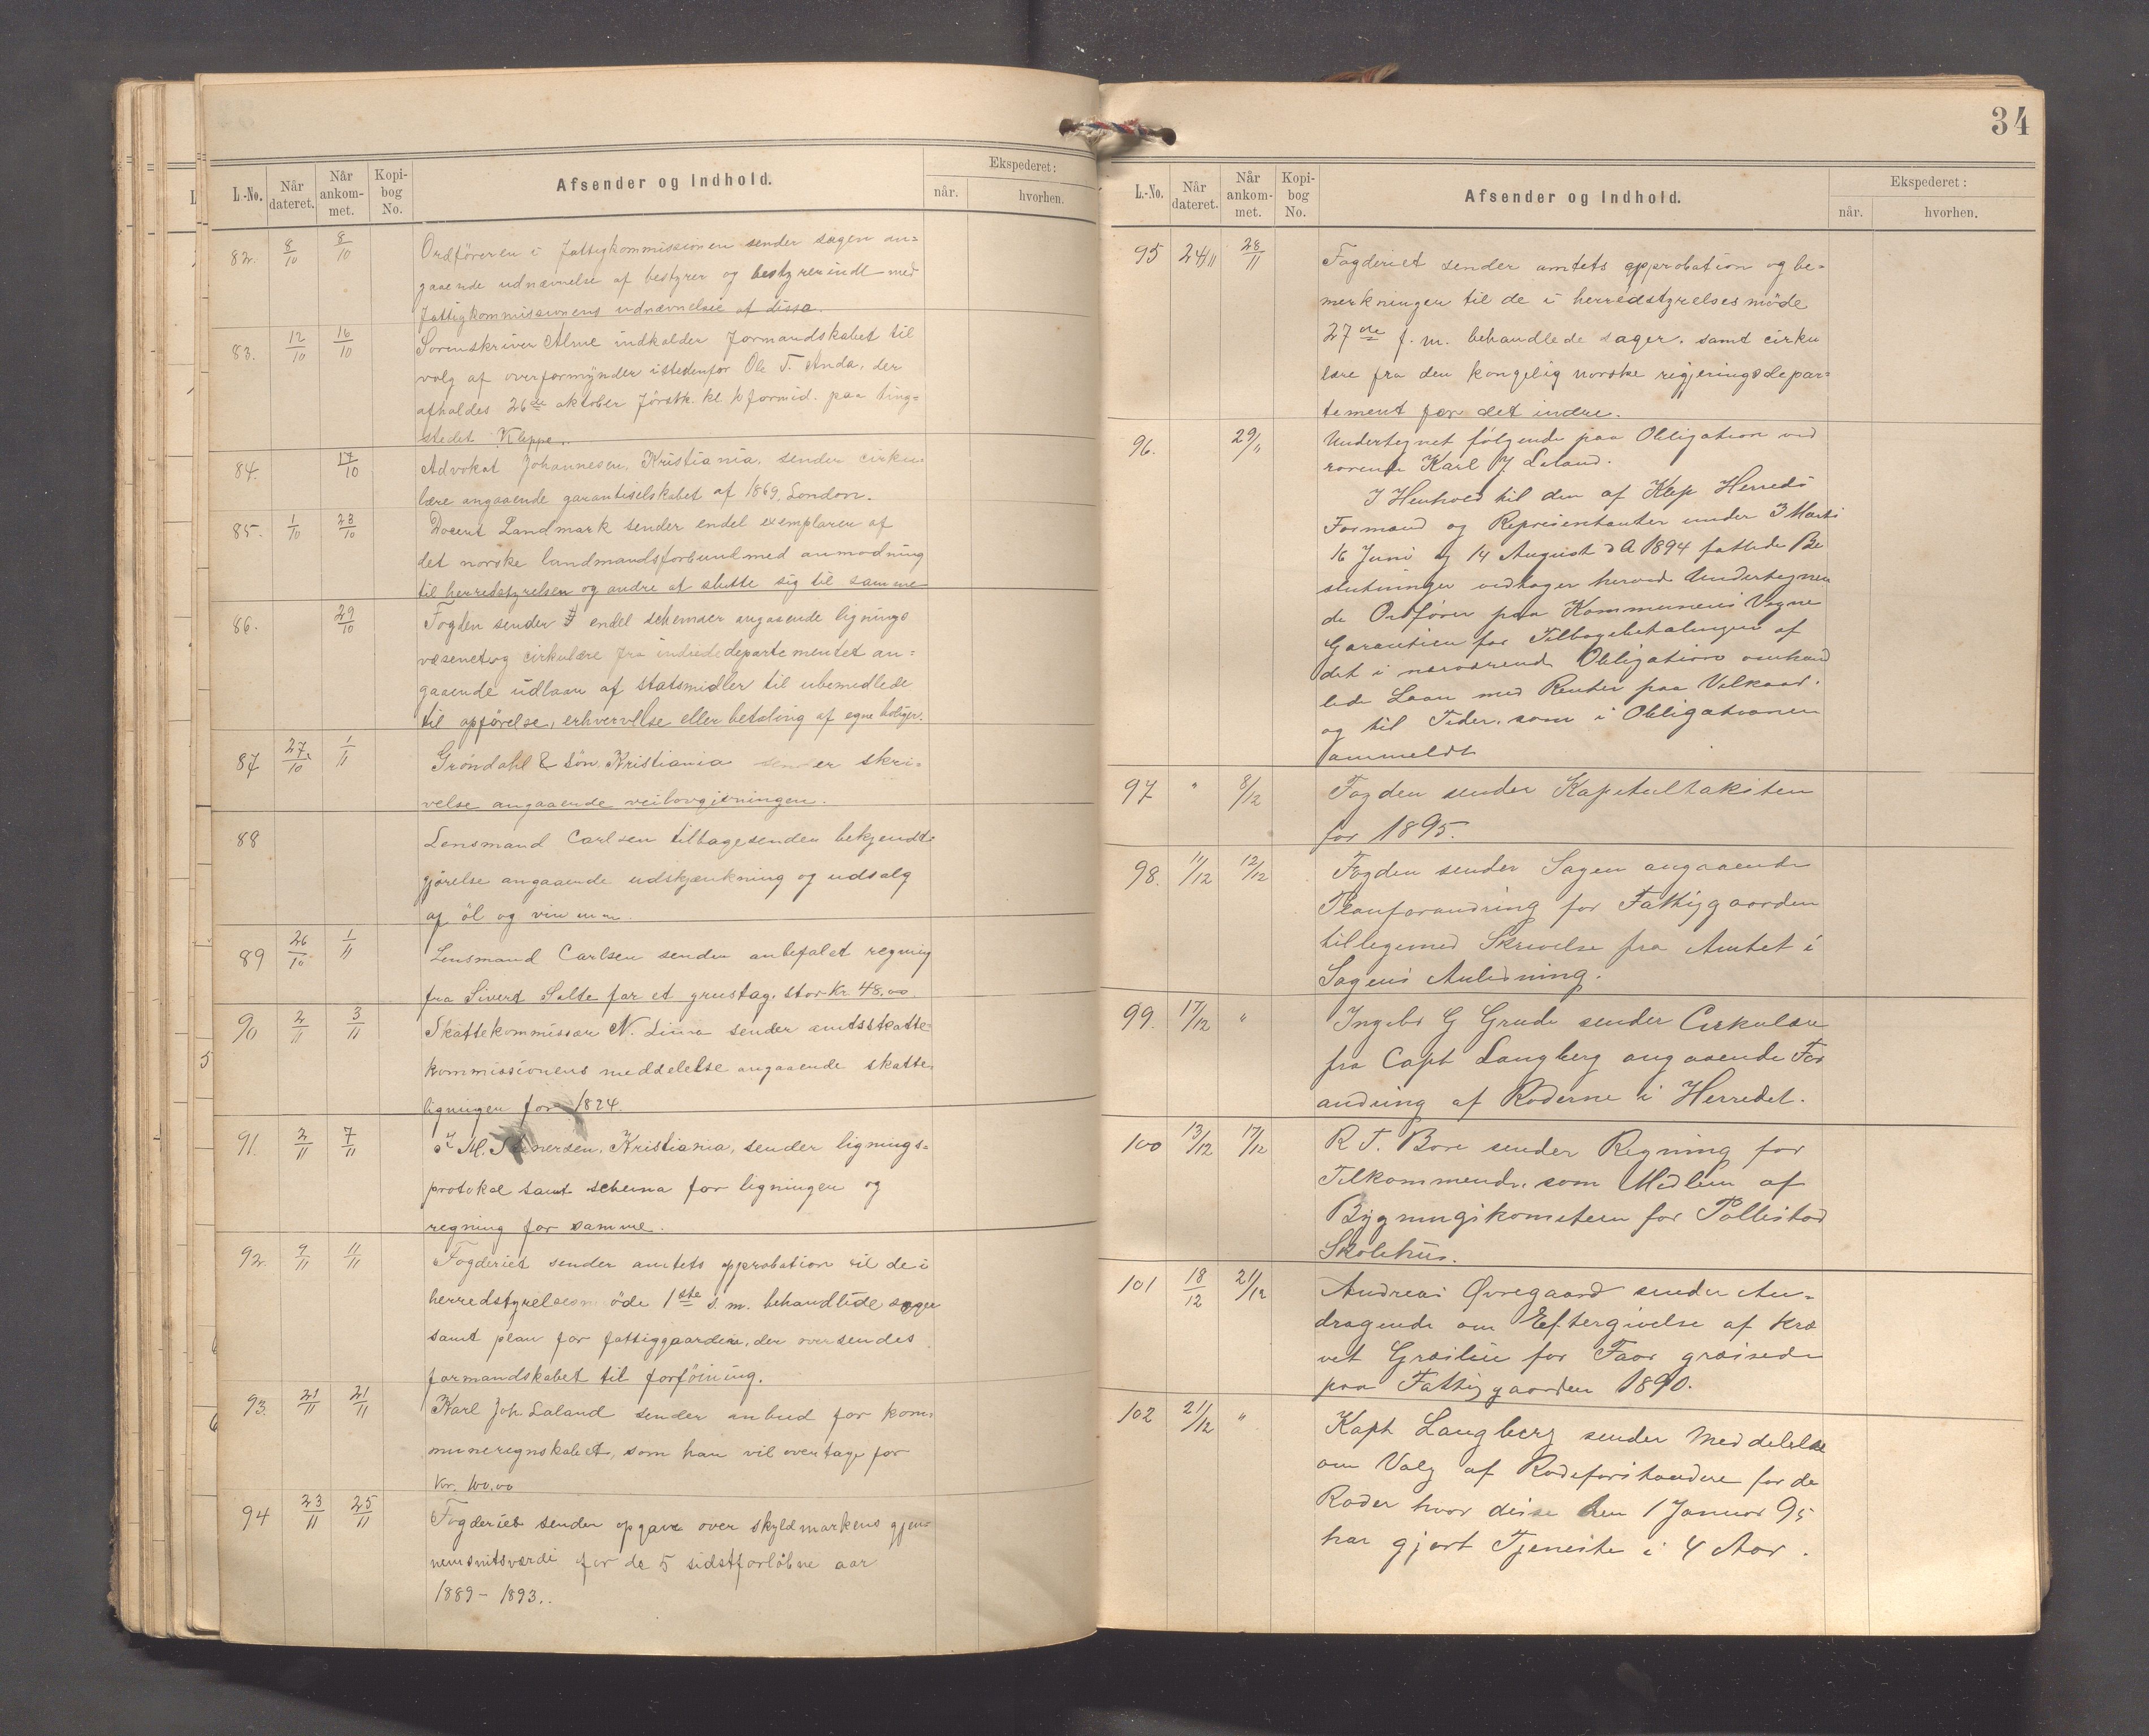 L.-No. Når dateret. Når ankommet. Kopibog No. Afsender og Indhold. Ekspederet: når. hvorhen.
82. 8/10 8/10 Ordföreren i fattigkommissionen sender sagen an=
gaaende udnævnelse af bestyrer og bestyrerinde med
fattigkommissionens udnævnelse af disse.
83. 12/10 16/10 Sorenskriver Alme indkalder formandskabet til
valg af overformynder istedenfor Ole T. Anda, der
afholdes 26de oktober førstk. kl 10 formid. paa ting=
stedet Kleppe.
84. 17/10 Advokat Johannesen, Kristiania, sender cirku=
lære angaaende garantiselskabet af 1869, London.
85. 1/10 23/10 Docent Landmark sender endel exemplarer af
det norske landmandsforbund med anmodning
til herredstyrelsen og andre at slutte sig til samme
86. 29/10 Fogden sender endel schemaer angaaende lignings
væsenet og cirkulære fra indrededepartementet an=
gaaende udlaan af statsmidler til ubemidlede
til opförelse, erhvervelse eller betaling af egne boliger.
87 27/10 1/11 Gröndahl & Sön, Kristiania sender skri=
velse angaaende veilovgivningen.
88 Lensmand Carlsen tilbagesender bekjendt=
gjörelse angaaende udskjænkning og udsalg
af öl og vin m.m.
89 26/10 1/11 Lensmand Carlsen sender anbefalet regning
fra Sivert Salte for et grustag, stor Kr. 48.00.
90 2/11 3/11 Skattekommissær N. Lima sender amtsskatte=
kommissionens meddelelse angaaende skatte
ligningen for 1824.
91. 2/11 7/11 M. Stenersen, Kristiania, sender lignings=
protokol samt schema for ligningen og
regning for samme.
92. 9/11 11/11 Fogderiet sender amtets approbation til de i
herredstyrelsesmöde 1ste d. m. behandlede sager
samt plan for fattiggaarden, der oversendes
formandskabet til forföining.
93. 21/11 21/11 Karl Joh. Laland sender anbud for kom=
muneregnskabet, som han vil overtage for
Kr. 100,00
94 23/11 25/11 Fogderiet sender opgave over skyldmarkens gjen=
nemsnitsværdi for de 5 sidstforløbne aar
1889 - 1893.
34
L.-No. Når dateret. Når ankommet. Kopibog No. Afsender og Indhold. Ekspederet: når. hvorhen.
95 24/11 28/11 Fogderiet sender amtets approbation og be=
merkningen til de i herredstyrelsesmöde
27de f. m. behandlede sager. samt cirku
lære fra den kongelig norske regjeringsdepar=
tement for det indre.
96. 29/11 Undertegnet følgende paa Obligation ved
rørende Karl J Laland.
I Henhold til den af Klep Herreds
Formand og Representanter under 3 Marts
16 Juni og 14 August d A 1894 fattede Be
slutninger vedtager herved Undertegne
de Ordfører paa Kommunens Vegne
Garantien for Tilbagebetalingen af
det i nærværende Obligation omhand
lede Laan med Renter paa Vilkaar.
og til Tider, som i Obligationen
ammeldt
97 " 8/12 Fogden sender Kapiteltaksten
for 1895.
98. 11/12 12/12 Fogden sender Sagen angaaende
Planforandring for Fattiggaarden
tilligemed Skrivelse fra Amtet i
Sagens Anledning.
99. 17/12 " Ingebr G Grude sender Cirkulære
fra Capt Langberg angaaende For
andring af Roderne i Herredet.
100 13/12 17/12 R T. Bore sender Regning for
Tilkommende, som Medlem af
Bygningskomiteen for Pollestad
Skolehus.
101 18/12 21/12 Andreas Øvregaard sender An=
dragende om Eftergivelse af kræ
vet Græsleie for Faar græsede
paa Fattiggaarden 1890.
102 21/12 " Kapt Langberg sender Meddelelse
om Valg af Rodeforstandere for de
Roder hvor disse den 1 Januar 95
har gjort Tjeneste i 4 Aar.